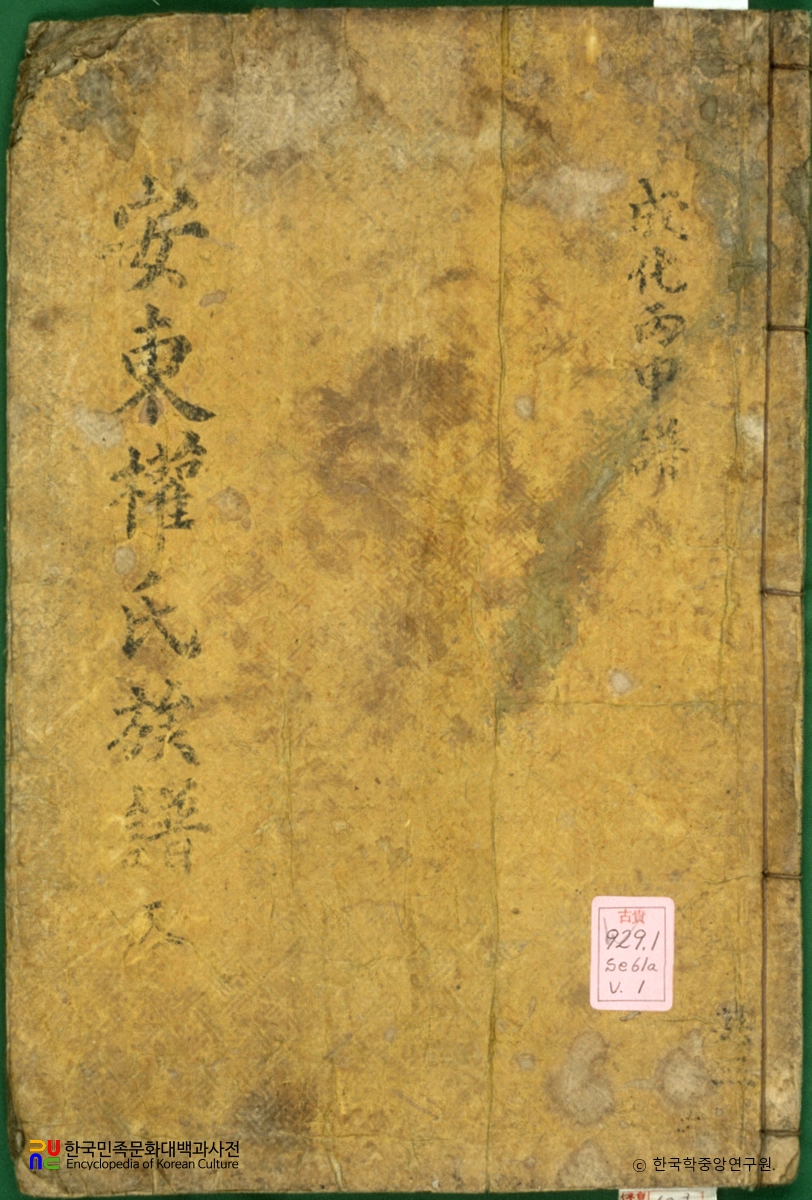 成化丙申譜
安東權氏族譜 天
古貴
929.1
Se61a
V. 1
한국민족문화대백과사전
Encyclopedia of Korean Culture
© 한국학중앙연구원.